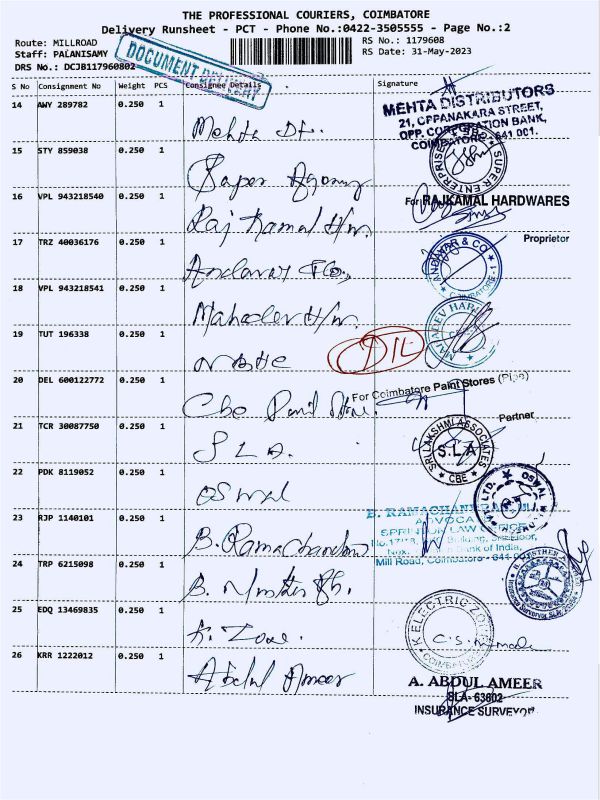 THE PROFESSIONAL COURIERS, COIMBATORE
Delivery Runsheet - PCT - Phone No.:0422-3505555 - Page No.:2
Route: MILLROAD RS No.: 1179608
Staff: PALANISAMY RS Date: 31-May-2023
DRS No.: DCJB117960802
DOCUMENT
S No Consignment No Weight PCS Consignee Details Signature
14 AWY 289782 0.250 1
Mehta Dt.
MEHTA DISTRIBUTORS
21, OPPANAKARA STREET,
OPP. CORPORATION BANK,
COIMBATORE - 641 001.
15 STY 859038 0.250 1
Super Agency
SUPER ENTERPRISE
16 VPL 943218540 0.250 1
Raj Kamal H/w.
For RAJKAMAL HARDWARES
Proprietor
17 TRZ 40036176 0.250 1
Andavar & Co.,
ANDAVAR & CO
COIMBATORE - 1
18 VPL 943218541 0.250 1
Mahadev H/w.
MAHADEV HARD
19 TUT 196338 0.250 1
20 DEL 600122772 0.250 1
Cbe Paint Store.
For Coimbatore Paint Stores
Partner
21 TCR 30087750 0.250 1
S L A.
SRI LAKSHMI ASSOCIATES
S.L.A
CBE
22 PDK 8119052 0.250 1
OSWAL
OSWAL
PVT. LTD.
23 RJP 1140101 0.250 1
B. Ramachandran
B. RAMACHANDRAN
ADVOCATE
LAW OFFICE
Building, Floor,
Bank of India,
Mill Road, Coimbatore - 641
24 TRP 6215098 0.250 1
25 EDQ 13469835 0.250 1
K. Zone.
K ELECTRIC ZONE
COIMBATORE
26 KRR 1222012 0.250 1
Abdul Ameer
A. ABDUL AMEER
SLA- 63602
INSURANCE SURVEYOR